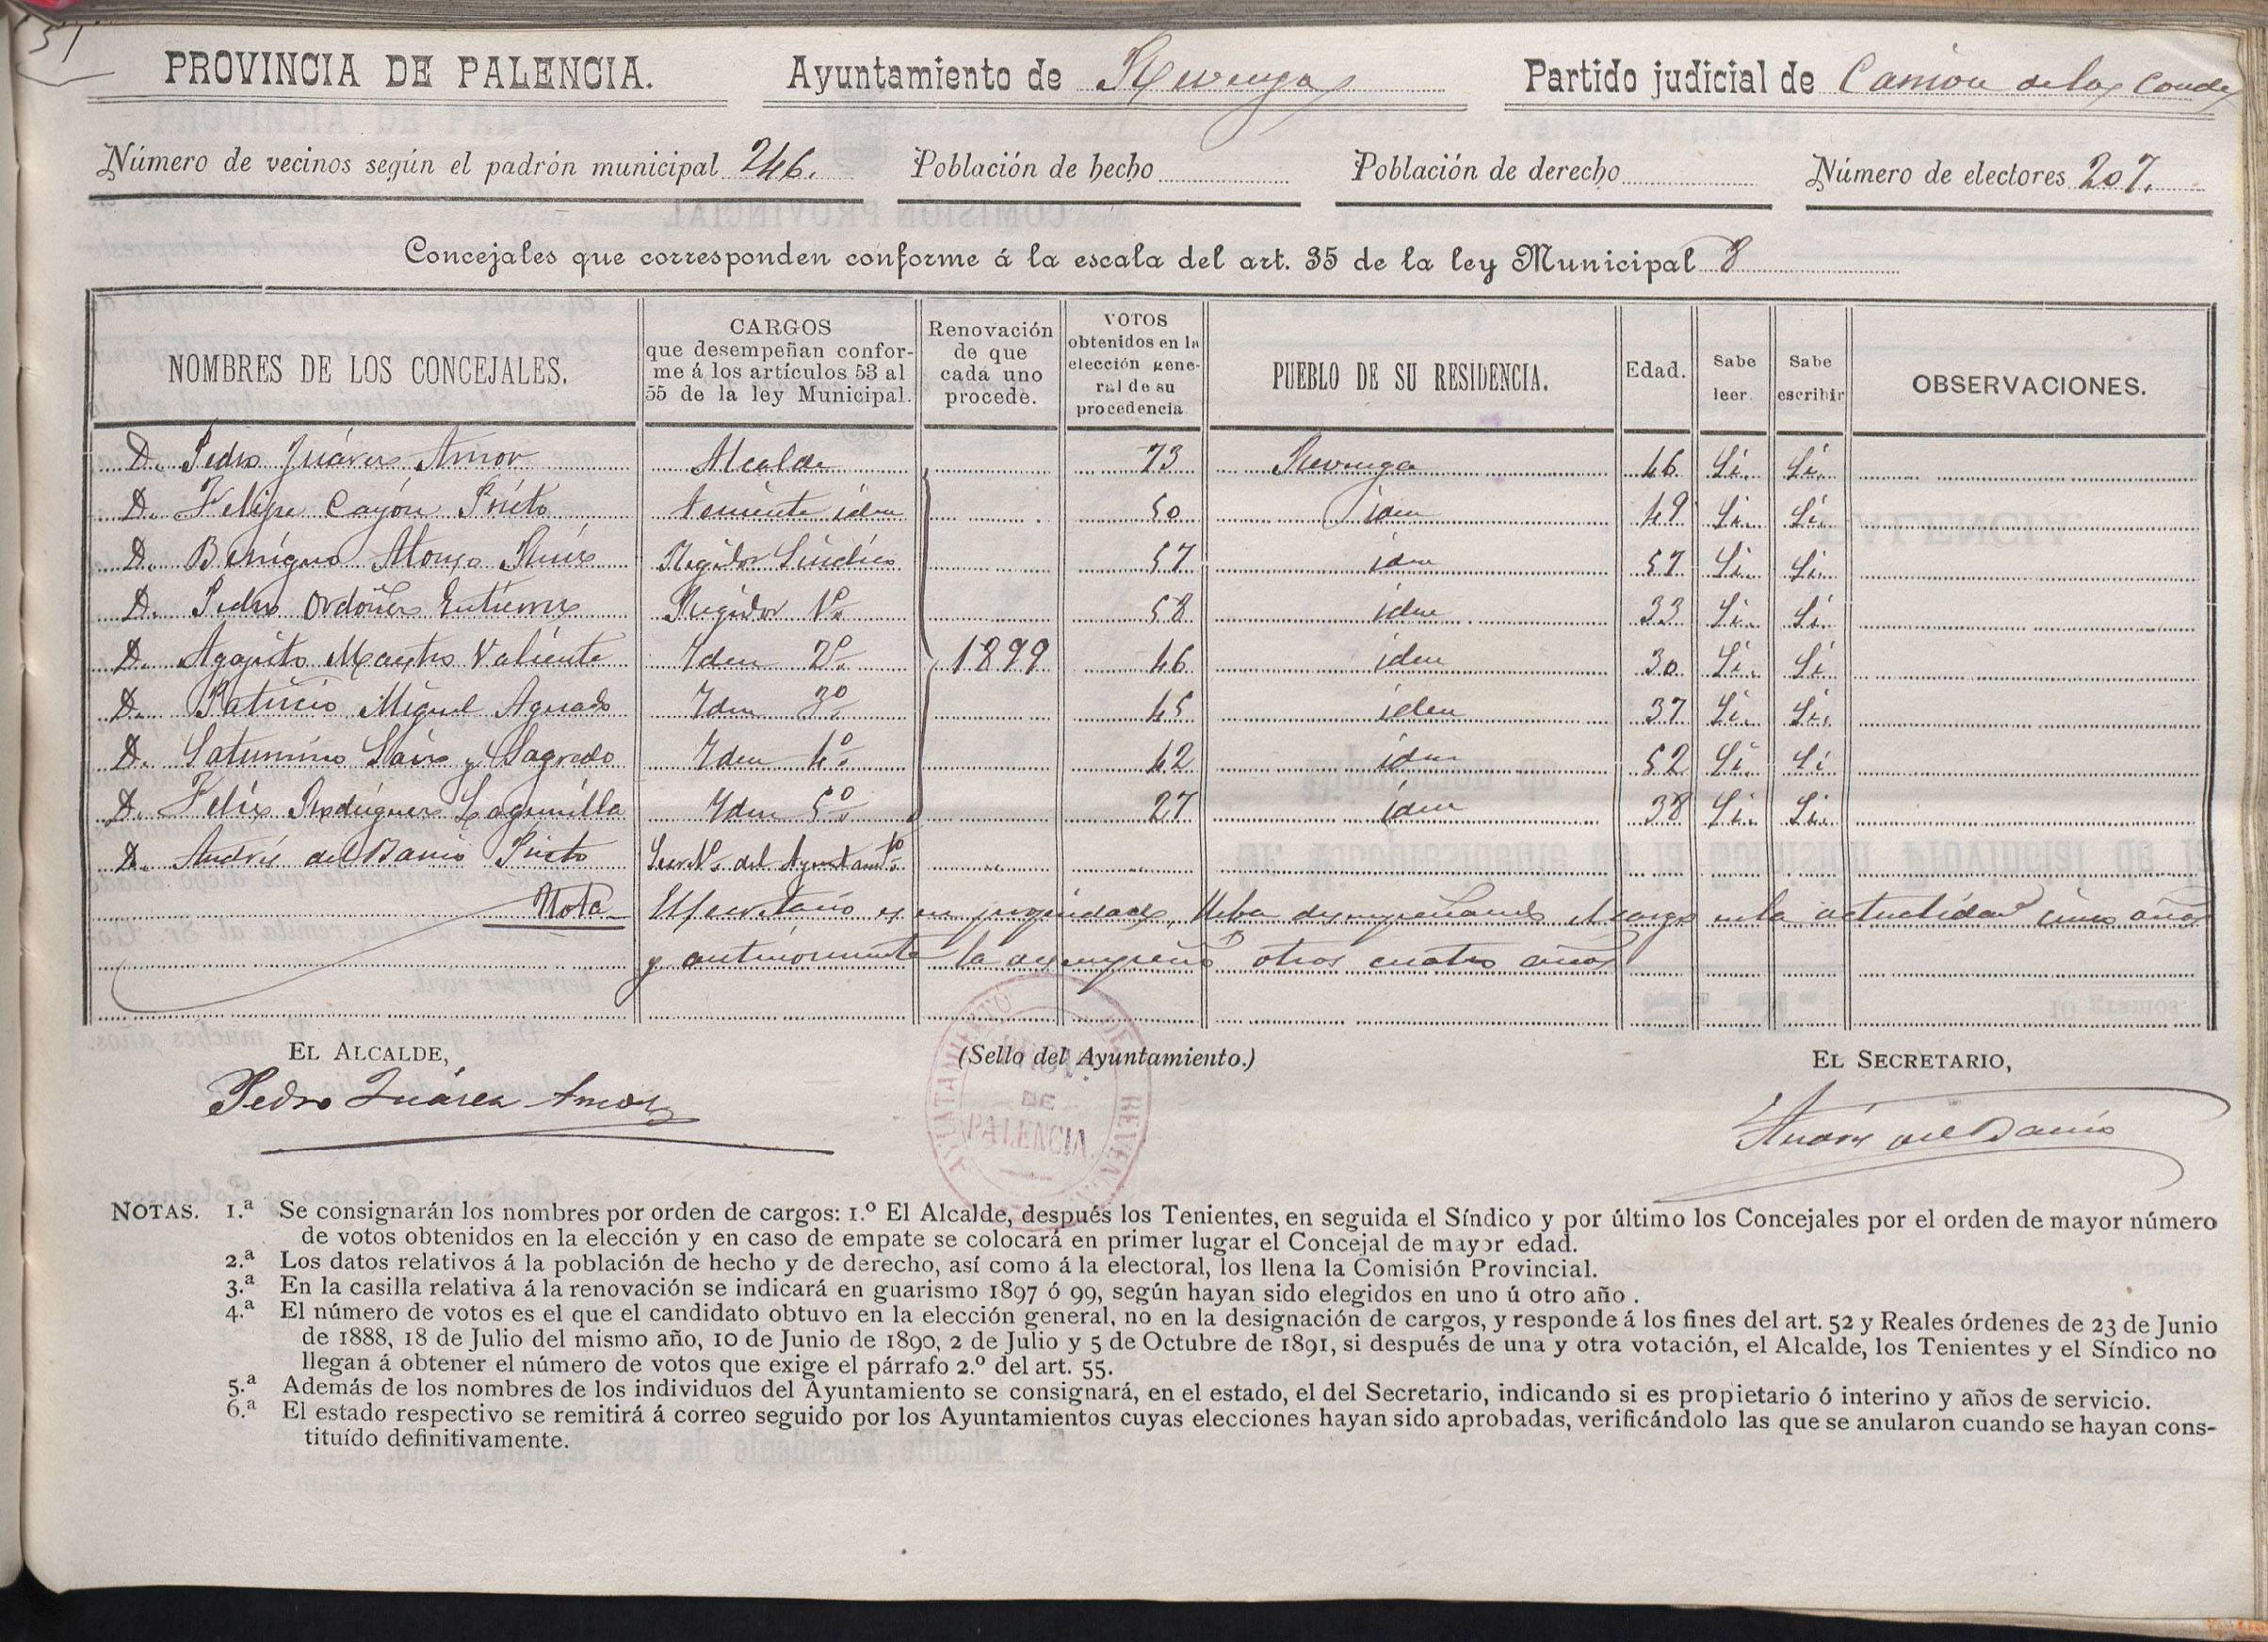 51
PROVINCIA DE PALENCIA. Ayuntamiento de Revenga Partido judicial de Carrion de los Condes
Número de vecinos según el padrón municipal 246. Población de hecho Población de derecho Número de electores 207.
Concejales que corresponden conforme á la escala del art. 35 de la ley Municipal 8
NOMBRES DE LOS CONCEJALES. CARGOS que desempeñan conforme á los artículos 53 al 55 de la ley Municipal. Renovación de que cada uno procede. VOTOS obtenidos en la elección general de su procedencia PUEBLO DE SU RESIDENCIA. Edad. Sabe leer. Sabe escribir OBSERVACIONES.
D. Pedro Juárez Amor Alcalde 73 Revenga 46 Si. Si.
D. Felipe Cayón Prieto teniente idem 50 idem 49 Si. Si.
D. Benigno Alonso Ruiz Regidor Sindico 57 idem 57 Si. Si.
D. Pedro Ordoñez Gutierrez Regidor 1º 58 idem 33 Si. Si.
D. Agapito Maestro Valiente Idem 2º 1899 46 idem 30 Si. Si
D. Patricio Miguel Aguado Idem 3º 45 idem 37 Si. Si.
D. Saturnino Saiz y Sagredo Idem 4º 42 idem 52 Si. Si
D. Felix Rodriguez Lagunilla Idem 5º 27 idem 38 Si. Si.
D. Andrés del Barrio Prieto Secretº del Ayuntamto
Nota El secretario es en propiedad, lleba desempeñando el cargo en la actualidad cinco años
y anteriormente la desempeñó otros cuatro años
EL ALCALDE, (Sello del Ayuntamiento.) EL SECRETARIO,
Pedro Juárez Amor Andrés del Barrio
AYUNTAMIENTO DE REVENGA
DE
PALENCIA.
NOTAS. 1.ª Se consignarán los nombres por orden de cargos: 1.º El Alcalde, después los Tenientes, en seguida el Síndico y por último los Concejales por el orden de mayor número
de votos obtenidos en la elección y en caso de empate se colocará en primer lugar el Concejal de mayor edad.
2.ª Los datos relativos á la población de hecho y de derecho, así como á la electoral, los llena la Comisión Provincial.
3.ª En la casilla relativa á la renovación se indicará en guarismo 1897 ó 99, según hayan sido elegidos en uno ú otro año.
4.ª El número de votos es el que el candidato obtuvo en la elección general, no en la designación de cargos, y responde á los fines del art. 52 y Reales órdenes de 23 de Junio
de 1888, 18 de Julio del mismo año, 10 de Junio de 1890, 2 de Julio y 5 de Octubre de 1891, si después de una y otra votación, el Alcalde, los Tenientes y el Síndico no
llegan á obtener el número de votos que exige el párrafo 2.º del art. 55.
5.ª Además de los nombres de los individuos del Ayuntamiento se consignará, en el estado, el del Secretario, indicando si es propietario ó interino y años de servicio.
6.ª El estado respectivo se remitirá á correo seguido por los Ayuntamientos cuyas elecciones hayan sido aprobadas, verificándolo las que se anularon cuando se hayan cons-
tituído definitivamente.